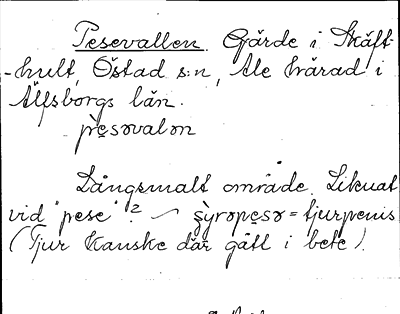 Pesevallen. Gärde i Skäft-
-hult, Östad s:n, Ale härad i
Älfsborgs län.
pe̱səvalən
Långsmalt område. Liknat
vid "pese"? ~ şyrəpe̱sə = tjurpenis
(Tjur kanske där gått i bete).